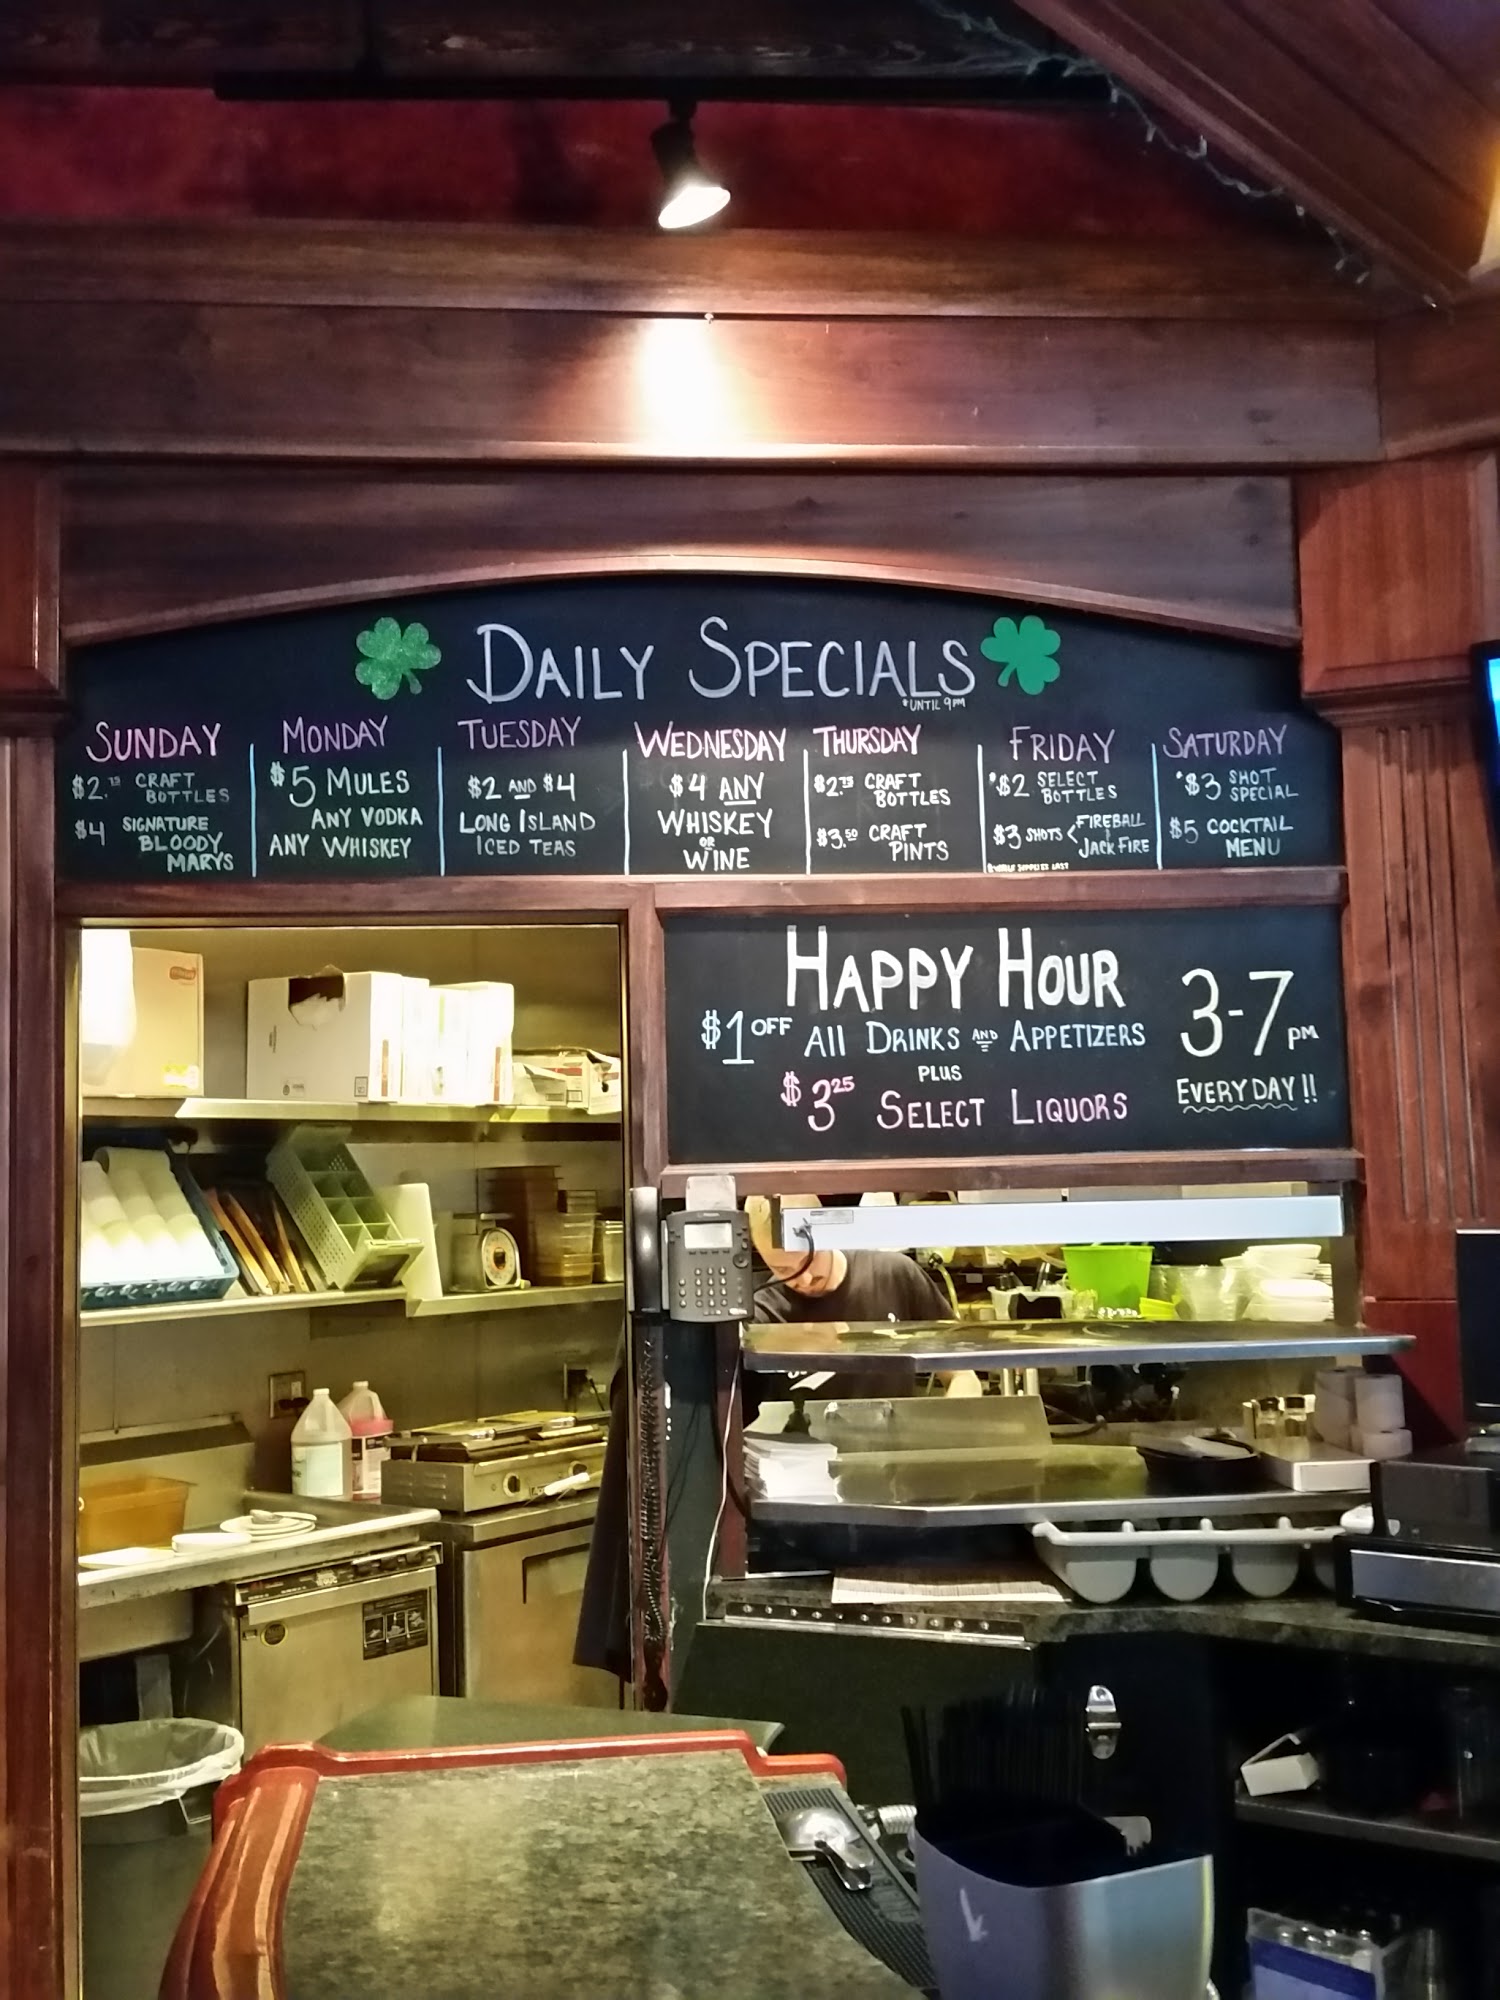 DAILY SPECIALS
*UNTIL 9PM
SUNDAY
$2.75 CRAFT
BOTTLES
$4 SIGNATURE
BLOODY
MARYS
MONDAY
$5 MULES
ANY VODKA
ANY WHISKEY
TUESDAY
$2 AND $4
LONG ISLAND
ICED TEAS
WEDNESDAY
$4 ANY
WHISKEY
OR
WINE
THURSDAY
$2.75 CRAFT
BOTTLES
$3.50 CRAFT
PINTS
FRIDAY
*$2 SELECT
BOTTLES
$3 SHOTS < FIREBALL
JACK FIRE
*WHILE SUPPLIES LAST
SATURDAY
*$3 SHOT
SPECIAL
$5 COCKTAIL
MENU
HAPPY HOUR
$1 OFF ALL DRINKS AND APPETIZERS
PLUS
$3.25 SELECT LIQUORS
3-7 PM
EVERYDAY!!